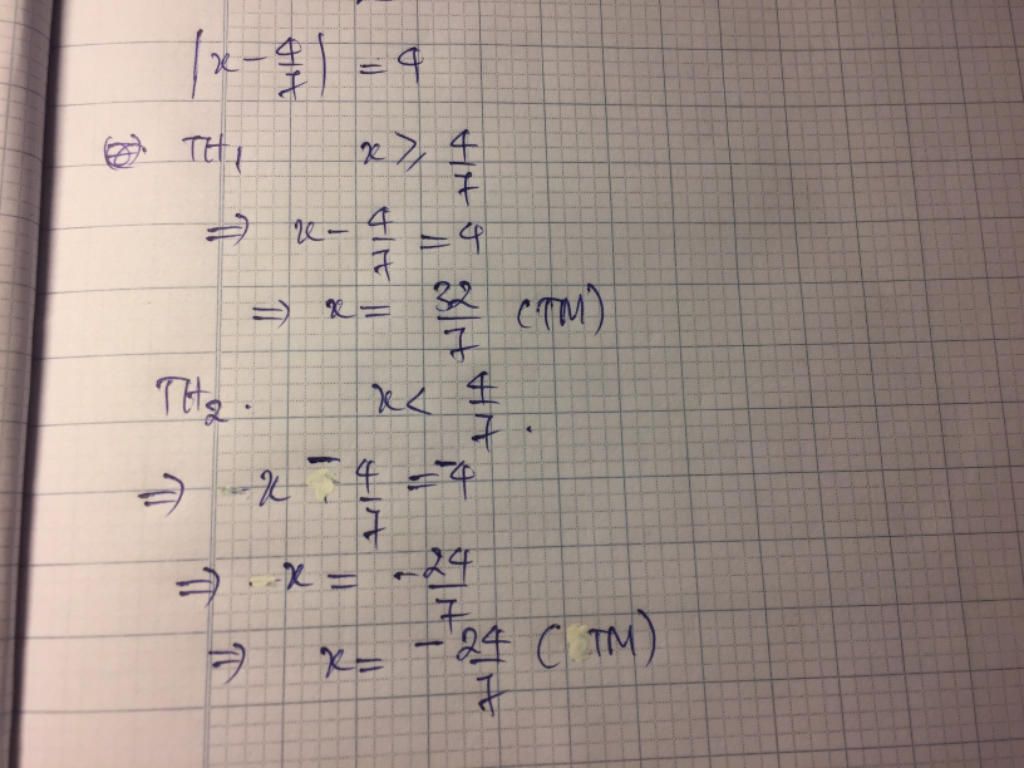 |x - 4/7| = 4
TH1 x ≥ 4/7
⇒ x - 4/7 = 4
⇒ x = 32/7 (TM)
TH2. x < 4/7.
⇒ x - 4/7 = -4
⇒ x = -24/7
⇒ x = -24/7 (TM)